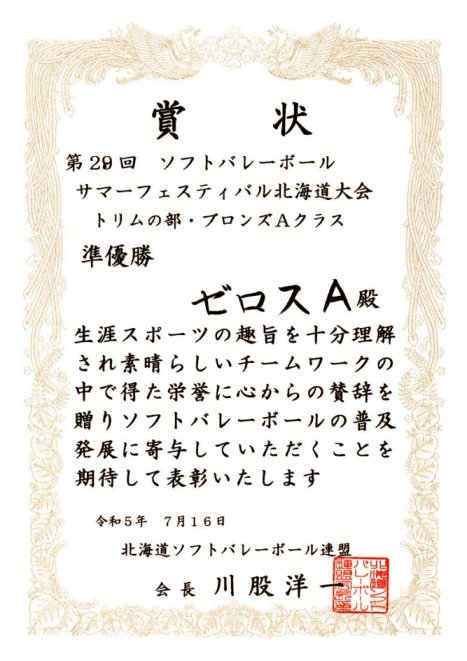 賞状
第29回 ソフトバレーボール
サマーフェスティバル北海道大会
トリムの部・ブロンズAクラス
準優勝
ゼロスA殿
生涯スポーツの趣旨を十分理解
され素晴らしいチームワークの
中で得た栄誉に心からの賛辞を
贈りソフトバレーボールの普及
発展に寄与していただくことを
期待して表彰いたします
令和5年 7月16日
北海道ソフトバレーボール連盟
会長 川股洋一